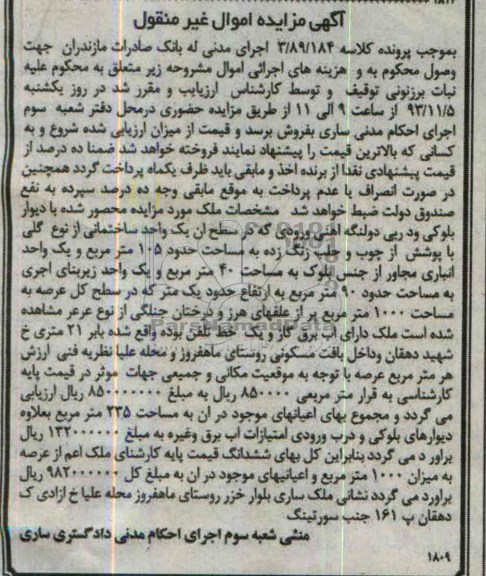 آگهی مزایده اموال غیر منقول
بموجب پرونده کلاسه ۳/۸۹/۱۸۴ اجرای مدنی له بانک صادرات مازندران جهت
وصول محکوم به و هزینه های اجرائی اموال مشروحه زیر متعلق به محکوم علیه
نبات برزنونی توقیف و توسط کارشناس ارزیابب و مقرر شد در روز یکشنبه
۹۳/۱۱/۵ از ساعت ۹ الی ۱۱ از طریق مزایده حضوری درمحل دفتر شعبه سوم
اجرای احکام مدنی ساری بفروش برسد و قیمت از میزان ارزیابی شده شروع و به
کسانی که بالاترین قیمت را پیشنهاد نمایند فروخته خواهد شد ضمنا ده درصد از
قیمت پیشنهادی نقدا از برنده اخذ و مابقی باید ظرف یکماه پرداخت گردد همچنین
در صورت انصراف یا عدم پرداخت به موقع مابقی وجه ده درصد سپرده به نفع
صندوق دولت ضبط خواهد شد مشخصات ملک مورد مزایده محصور شده با دیوار
بلوکی ود ربی دولنگه اهنی ورودی که در سطح ان یک واحد ساختمانی از نوع گلی
با پوشش از چوب و حلب زنگ زده به مساحت حدود ۱۰۵ متر مربع و یک واحد
انباری مجاور از جنس بلوک به مساحت ۴۰ متر مربع و یک واحد زیربنای اجری
به مساحت حدود ۹۰ متر مربع به ارتفاع حدود یک متر که در سطح کل عرصه به
مساحت ۱۰۰۰ متر مربع پر از علفهای هرز و درختان جنگلی از نوع عرعر مشاهده
شده است ملک دارای اب برق گاز و یک خط تلفن بوده واقع شده بابر ۲۱ متری خ
شهید دهقان وداخل بافت مسکونی روستای ماهفروز و محله علیا نظریه فنی ارزش
هر متر مربع عرصه با توجه به موقعیت مکانی و جمیعی جهات موثر در قیمت پایه
کارشناسی به قرار متر مربعی ۸۵۰۰۰۰ ریال به مبلغ ۸۵۰۰۰۰۰۰۰ ریال ارزیابی
می گردد و مجموع بهای اعیانهای موجود در ان به مساحت ۲۳۵ متر مربع بعلاوه
دیوارهای بلوکی و درب ورودی امتیازات اب برق وغیره به مبلغ ۱۳۲۰۰۰۰۰۰ ریال
براور د می گردد بنابراین کل بهای ششدانگ قیمت پایه کارشنای ملک اعم از عرصه
به میزان ۱۰۰۰ متر مربع و اعیانیهای موجود در ان به مبلغ کل ۹۸۲۰۰۰۰۰۰ ریال
براورد می گردد نشانی ملک ساری بلوار خزر روستای ماهفروز محله علیا خ ازادی ک
دهقان پ ۱۶۱ جنب سورتینگ
منشی شعبه سوم اجرای احکام مدنی دادگستری ساری
۱۸۰۹